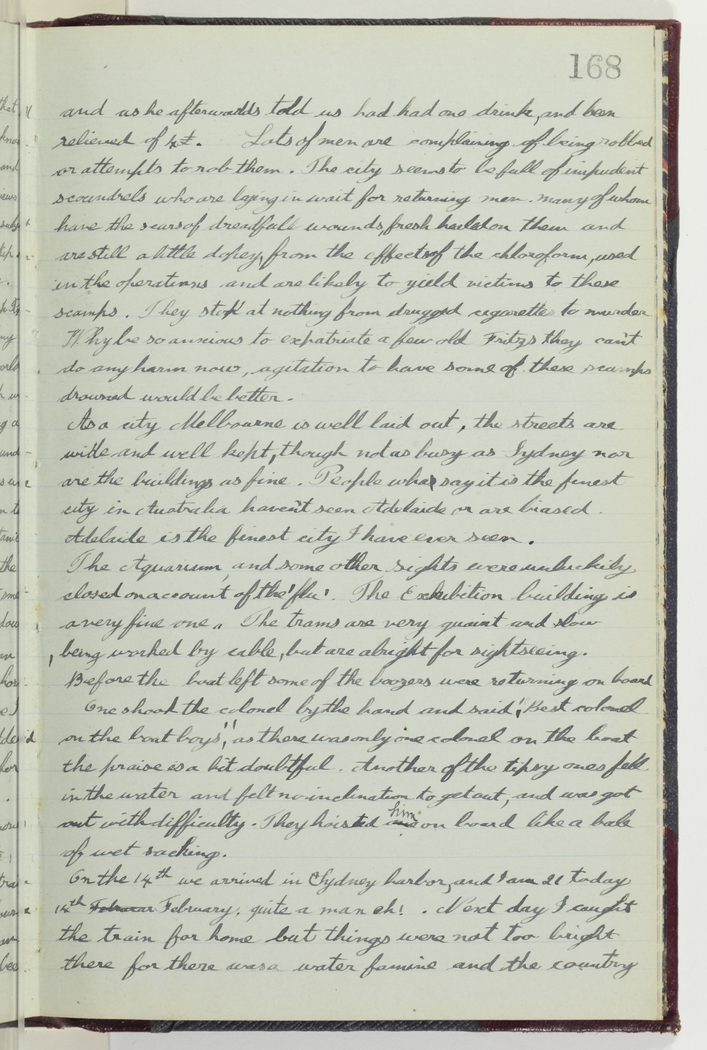 168
and as he afterwards told us had had one drink, and been
relieved of £4. Lots of men are complaining of being robbed
or attempts to rob them. The city seems to be full of impudent
scoundrels who are laying in wait for returning men. many of whom
have the scars of dreadfull wounds, fresh healed on them and
are still a little dopey, from the effects of the chloroform, used
in the operations and are likely to yield victims to these
scamps. They stop at nothing from drugged cigarettes to murder
Why be so anxious to expatriate a few old Fritzs they can't
do any harm now, agitation to have some of these scamps
drowned would be better.
As a city Melbourne is well laid out, the streets are
wide and well kept, though not as busy as Sydney nor
are the buildings as fine. People who say it is the finest
city in Australia haven't seen Adelaide or are biased.
Adelaide is the finest city I have ever seen.
The Aquarium, and some other sights were unluckily
closed on account of the 'flu'. The Exhibition building is
a very fine one. The trams are very quaint and slow
, being worked by cable, but are alright for sightseeing.
Before the boat left some of the boozers were returning on board
One shook the colonel by the hand and said, "Best colonel
on the boat boys", as there was only one colonel on the boat
the praise is a bit doubtful. Another of the tipsy ones fell
in the water and felt no inclination to get out, and was got
out with difficulty. They hoisted him on board like a bale
of wet sacking.
On the 14th we arrived in Sydney harbor, and I am 21 today
14th February. quite a man eh! . Next day I caught
the train for home but things were not too bright
there for there was a water famine and the country